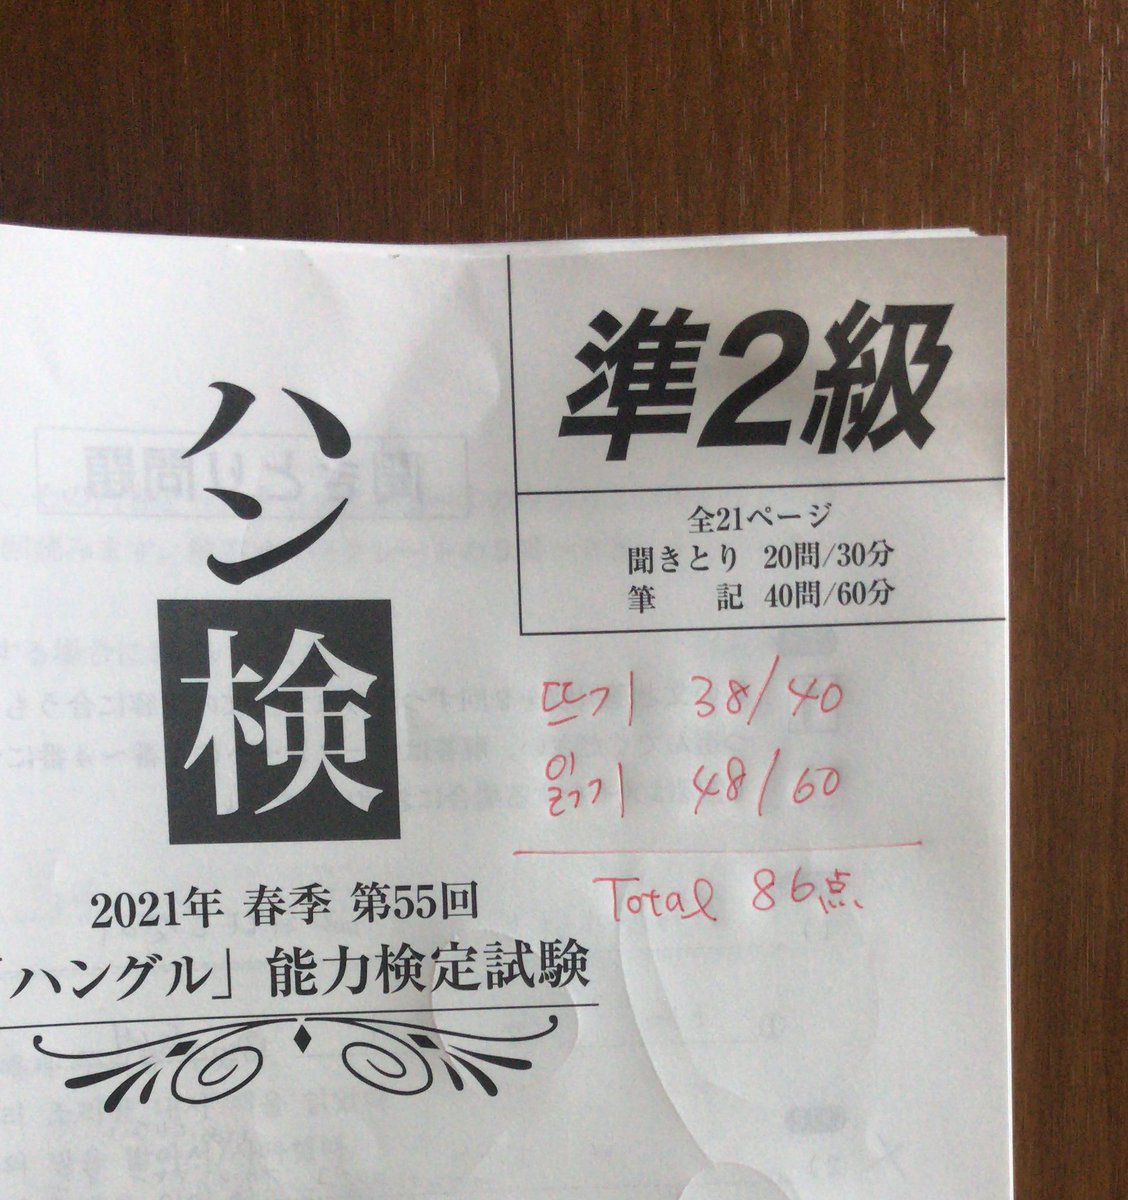 準2級
全21ページ
聞きとり 20問/30分
筆 記 40問/60分
ハン検
뜨기 38/40
읽기 48/60
Total 86点
2021年 春季 第55回
「ハングル」能力検定試験